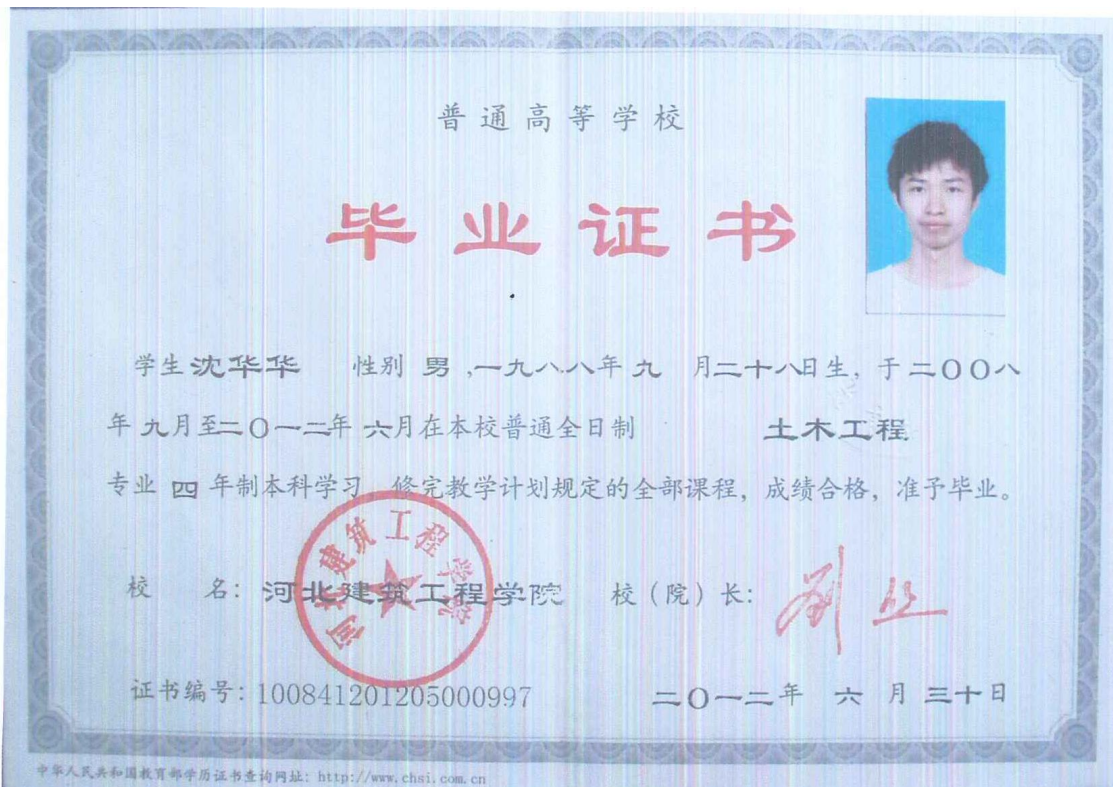 普通高等学校
毕业证书
学生 沈华华 性别 男 ,一九八八年 九 月二十八日生, 于二〇〇八
年 九月至二〇一二年 六月在本校普通全日制 土木工程
专业 四 年制本科学习, 修完教学计划规定的全部课程, 成绩合格, 准予毕业。
河北建筑工程学院
校 名: 河北建筑工程学院 校(院)长:
证书编号: 100841201205000997 二〇一二年 六 月 三十日
中华人民共和国教育部学历证书查询网址: http://www.chsi.com.cn